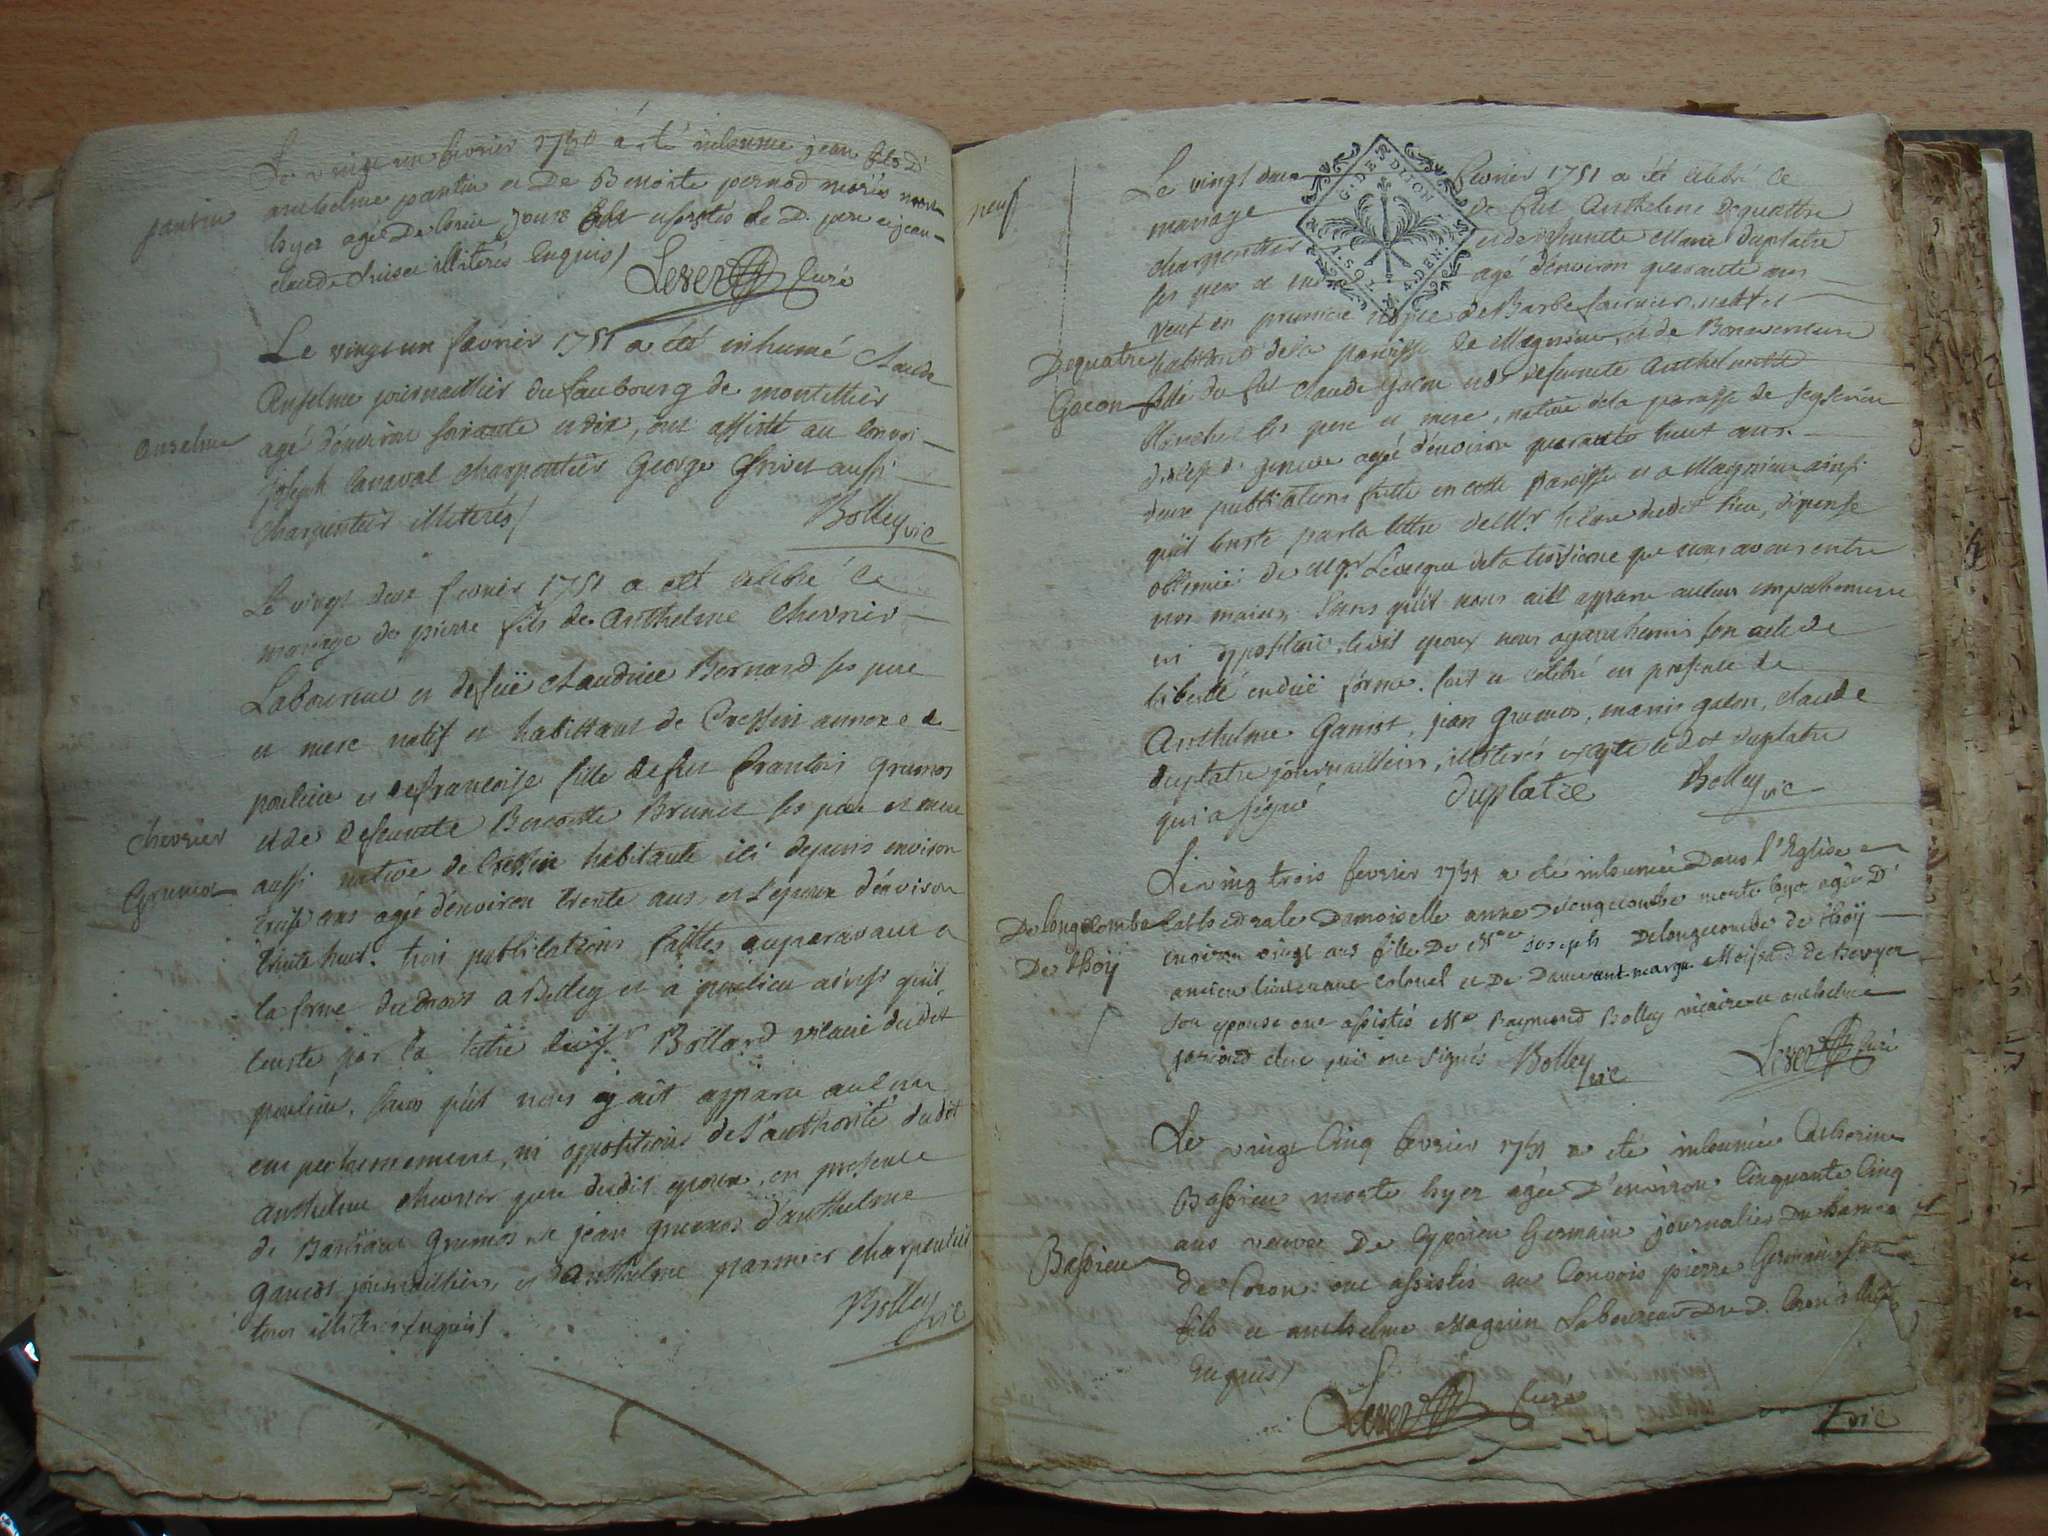 Le vingt un fevrier 1751 a été inhumé jean fils d'
anthelme pantin et De Benoite pernod mariés mort
hyer agé De trois jours ont assistés le D. pere et jean
claude illiterés Enquis
pantin
Lever Curé
Le vingt un fevrier 1751 a été inhumé Claude
Anselme journaillier du faubourg de montillier
agé d'environ soixante et dix, ont assisté au convoi
Anselme
joseph Canaval charpentier George Grivet aussi
charpentier illiterés
Bolley vic
Le vingt deux fevrier 1751 a été célébré le
mariage de pierre fils de Anthelme Chevrier
Laboureur et de fuë Claudine Bernard ses pere
et mere natif et habittant de Cressin annexe de
poulieu et de françoise fille de feu françois Grumos
et de defuncte Benoitte Brunet ses pere et mere
Chevrier
aussi native de Cressin habitante ici depuis environ
Grumos
trois ans agé d'environ trente ans, et l'epoux d'environ
trente huit. trois publications faittes auparavant a
la forme du droit a Belley et a poulieu ainsi qu'il
conste par la lettre du sr Bollard vicaire dudit
poulieu, sans qu'il nous y ait apparu aucun
empechemement, ni oppositions de l'authorité dudit
anthelme chevrier pere dudit epoux, en presence
de Grumos, de jean grumos d'anthelme
Ganiot journailliers, et d'Anthelme parmier charpentier
tous illiterés enquis
Bolley vic
neuf
Le vingt deux fevrier 1751 a été célébré le
mariage de feu Anthelme Dequattre
charpentier et de defuncte Marie Duplatre
ses pere et mere agé d'environ quarante ans
G. DE DIJON
veuf en premiere nopce de Barbe natif et
Dequatre
habittant de la paroisse de Magnieu, et de Bonaventure
Gacon
fille du feu Claude Gacon et de defuncte Anthelmette
ses pere et mere, native de la paroisse de
de geneve agée d'environ quarante huit ans
deux publications faitte en cette paroisse et a Magnieu ainsi
qu'il conste par la lettre de Mr le Curé dudit lieu, dispense
obtenuë de Mgr L'evecque de la troisieme que nous avons entre
nos mains, sans qu'il nous ait apparu aucun empechement
ni opposition, ledit epoux nous ayant remis son acte de
liberté en duë forme. fait et célébré en presence de
Anthelme Ganiot, jean grumos, manis gacon, claude
duplatre journailliers, illiterés excepté ledit duplatre
qui a signé
duplatre
Bolley vic
Le ving trois fevrier 1751 a été inhumée Dans l'Eglise
Delongecombe
Cathedrale Damoiselle anne Delongecombe morte hyer agée D'
De thoÿ
environ vingt ans fille De Mre joseph Delongecombe de thoÿ
ancien lieutenant Colonel et De Dame ant. marg. Moisand de Bevyer
son epouse ont assistés Mre Raymond Bolley vicaire et anthelme
pernod clerc qui ont signés
Bolley vic
Lever Curé
Le vingt Cinq fevrier 1751 a été inhumée Catherine
Bassieu morte hyer agée D'environ Cinquante Cinq
ans veuve De Cyprien Germain journalier du hameau
Bassieu
de Coron: ont assistés au Convois pierre Germain son
fils et anthelme Magnin Laboureur Du D. Coron illiterés
Enquis
Lever Curé
vic